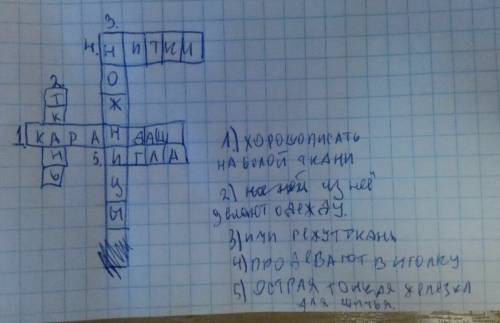 3.
4. НИТКИ
О
2. Ж
Т
К
1. КАРАНДАШ
Н 5. ИГЛА
Ь Ц
Ы
1) ХОРОШО ПИСАТЬ
НА БЕЛОЙ ТКАНИ
2) ИЗ НЕЁ
ДЕЛАЮТ ОДЕЖДУ.
3) ИМИ РЕЖУТ ТКАНЬ
4) ПРОДЕВАЮТ В ИГОЛКУ
5) ОСТРАЯ ТОНКАЯ ЖЕЛЕЗКА
ДЛЯ ШИТЬЯ.